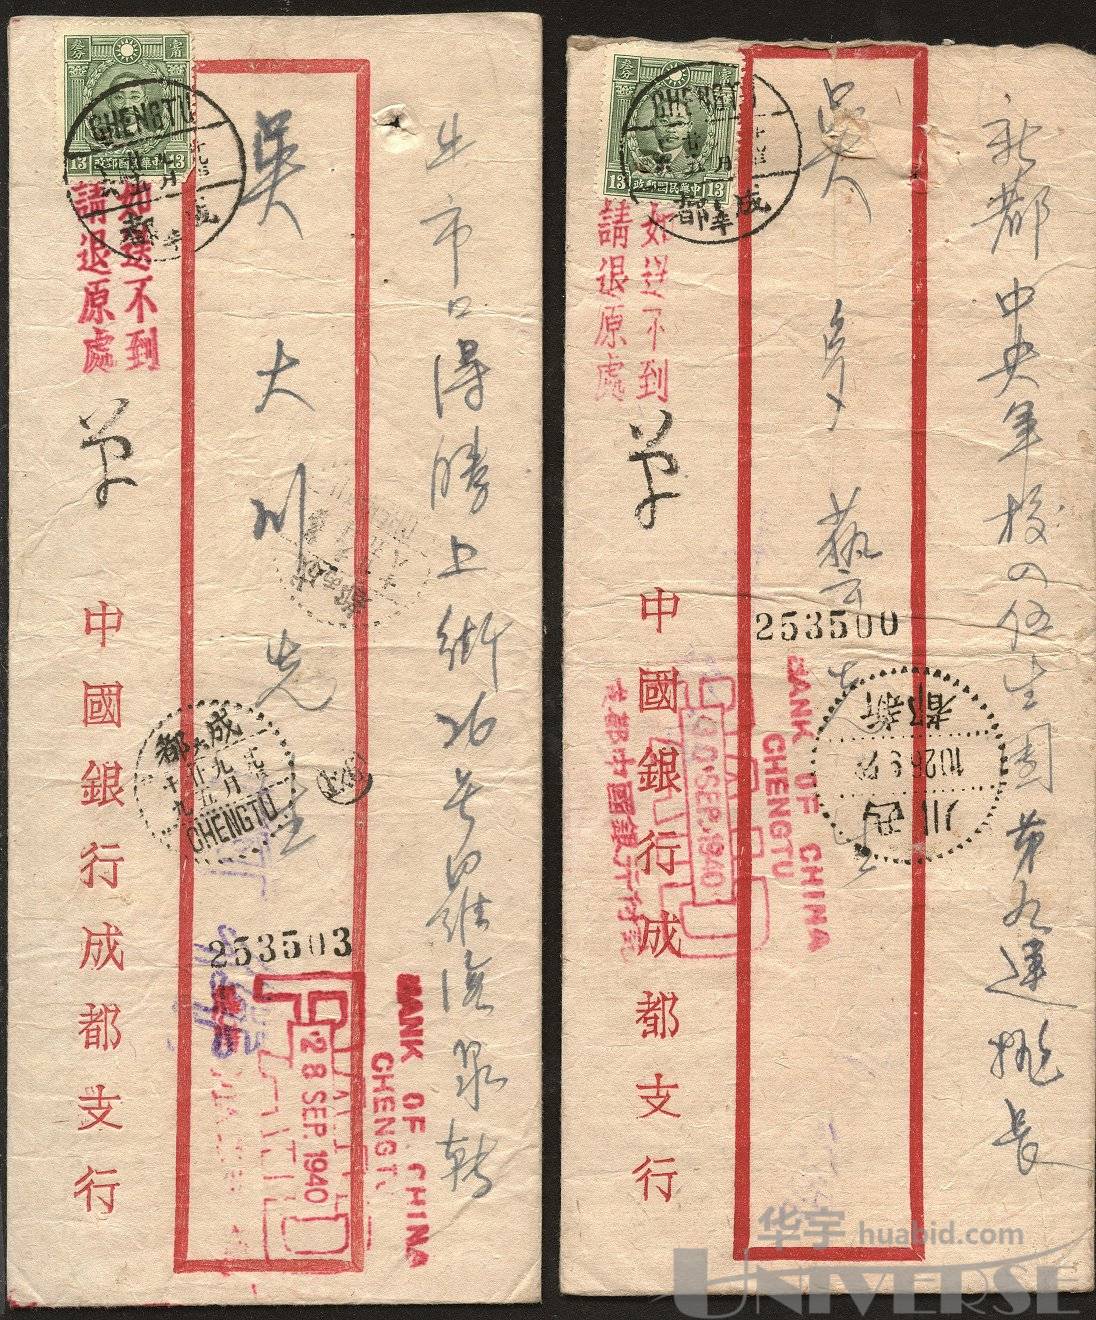 生市口得勝上街26号羅濱泉轉
吳大川先生
叁分
13
中華民國郵政
13
CHENGTU
成都
如送不到
請退原處
中國銀行成都支行
成都
CHENGTU
253503
28 SEP. 1940
BANK OF CHINA
CHENGTU
新都中央軍校入伍生團第九連
吳
藝云先生
叁分
13
中華民國郵政
13
CHENGTU
成都
如送不到
請退原處
中國銀行成都支行
253500
SEP. 1940
BANK OF CHINA
CHENGTU
成都中國銀行
新都
川西
华宇 huabid.com
UNIVERSE